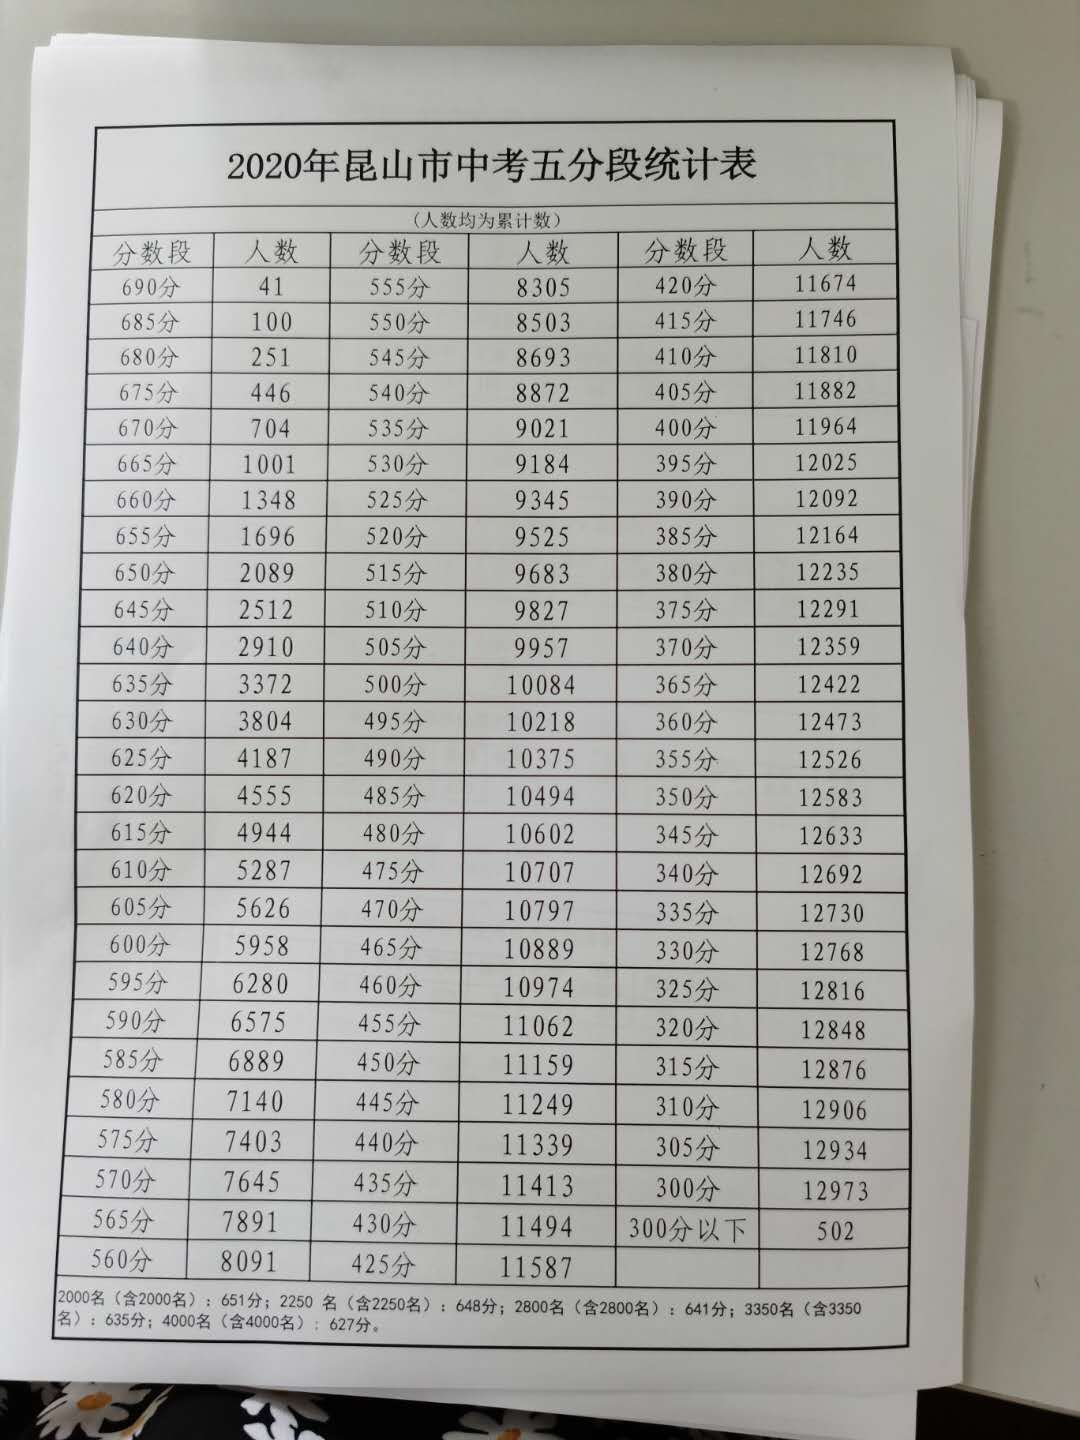 2020年昆山市中考五分段统计表
(人数均为累计数)
分数段 人数 分数段 人数 分数段 人数
690分 41 555分 8305 420分 11674
685分 100 550分 8503 415分 11746
680分 251 545分 8693 410分 11810
675分 446 540分 8872 405分 11882
670分 704 535分 9021 400分 11964
665分 1001 530分 9184 395分 12025
660分 1348 525分 9345 390分 12092
655分 1696 520分 9525 385分 12164
650分 2089 515分 9683 380分 12235
645分 2512 510分 9827 375分 12291
640分 2910 505分 9957 370分 12359
635分 3372 500分 10084 365分 12422
630分 3804 495分 10218 360分 12473
625分 4187 490分 10375 355分 12526
620分 4555 485分 10494 350分 12583
615分 4944 480分 10602 345分 12633
610分 5287 475分 10707 340分 12692
605分 5626 470分 10797 335分 12730
600分 5958 465分 10889 330分 12768
595分 6280 460分 10974 325分 12816
590分 6575 455分 11062 320分 12848
585分 6889 450分 11159 315分 12876
580分 7140 445分 11249 310分 12906
575分 7403 440分 11339 305分 12934
570分 7645 435分 11413 300分 12973
565分 7891 430分 11494 300分以下 502
560分 8091 425分 11587
2000名（含2000名）：651分；2250 名（含2250名）：648分；2800名（含2800名）：641分；3350名（含3350
名）：635分；4000名（含4000名）：627分。